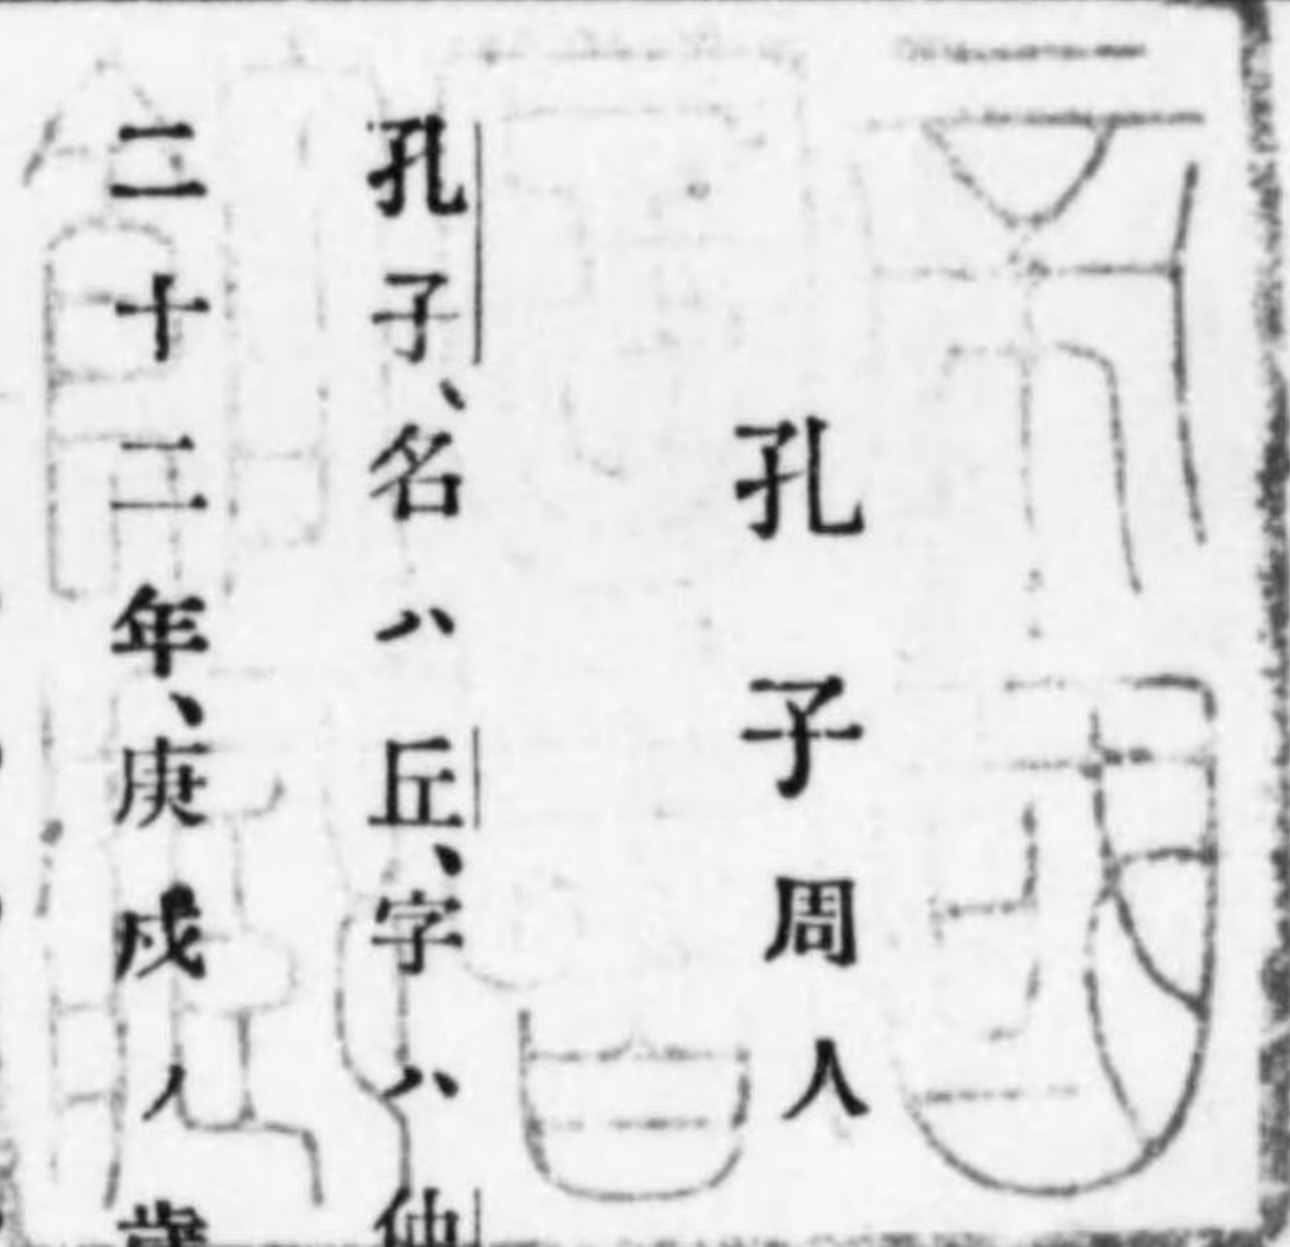 孔子周人
孔子、名ハ丘、字ハ仲
二十二年、庚戌ノ歳